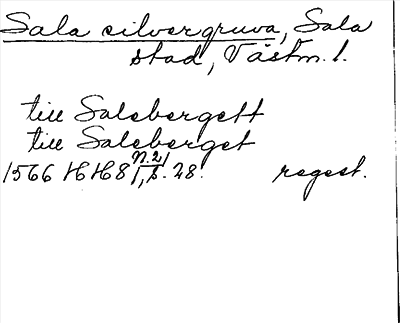 Sala silvergruva, Sala
stad, Västm. l.
till Salebergett
till Saleberget
1566 HH 8 N. 21
1, s. 28. regest.